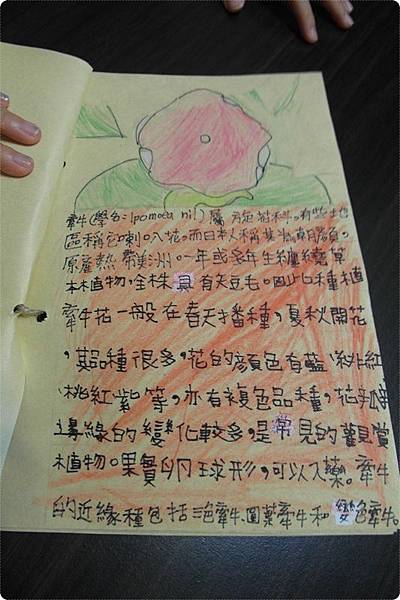 牽牛(學名:Ipomoea nil)屬 旋花科。有些地
區稱它喇叭花。而日本人稱其為朝顏。
原產熱帶美洲。一年或多年生纏繞草
本植物,全株具有粗毛。因此種植
牽牛花一般在春天播種,夏秋開花
,其品種很多,花的顏色有藍、緋紅
、桃紅、紫等,亦有複色品種,花瓣
邊緣的變化較多,是常見的觀賞
植物。果實卵球形,可以入藥。牽牛
的近緣種包括 牽牛、圓葉牽牛和變色牽牛。